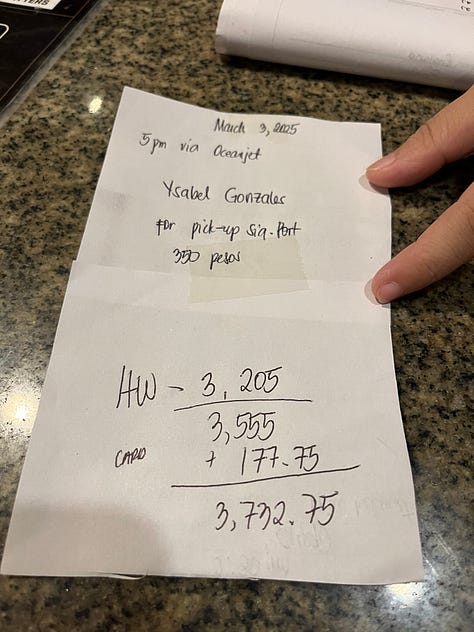 March 3, 2025
5pm via Oceanjet
Ysabel Gonzales
For pick-up Siq. Port
350 pesos
HW - 3,205
3,555
CARD + 177.75
3,732.75